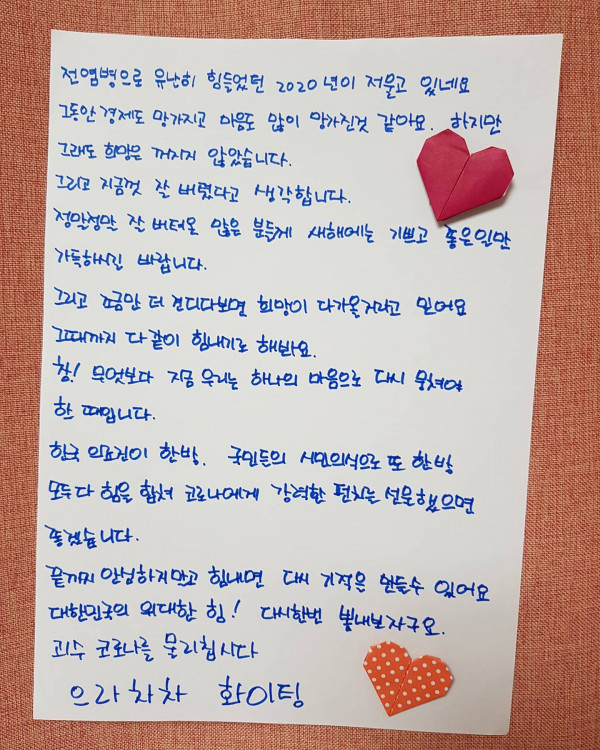 전염병으로 유난히 힘들었던 2020년이 저물고 있네요
그동안 경제도 망가지고 마음도 많이 망가진것 같아요. 하지만
그래도 희망은 꺼지지 않았습니다.
그리고 지금껏 잘 버텼다고 생각합니다.
정말정말 잘 버텨온 많은 분들께 새해에는 기쁘고 좋은일만
가득하시길 바랍니다.
그리고 조금만 더 견디다보면 희망이 다가올거라고 믿어요
그때까지 다같이 힘내기로 해봐요.
참! 무엇보다 지금 우리는 하나의 마음으로 다시 뭉쳐야
할 때입니다.
한국 의료진이 한방. 국민들의 시민의식으로 또 한방
모두다 힘을 합쳐 코로나에게 강력한 펀치를 선물했으면
좋겠습니다.
끝까지 안심하지말고 힘내면 다시 기적을 만들수 있어요
대한민국의 위대한 힘! 다시한번 뽐내보자구요.
괴수 코로나를 물리칩시다
으라차차 화이팅